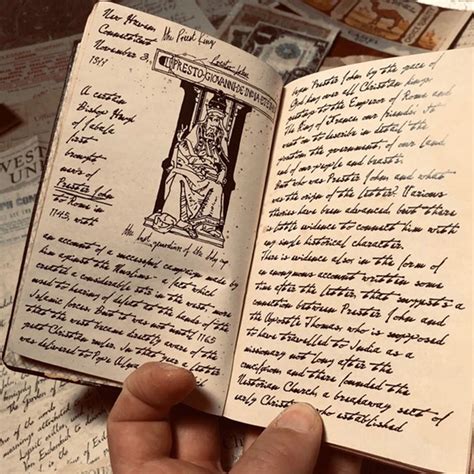 New Haven,
Connecticut
November 3,
1911
The Priest King
Prester John
PRESTO GIOVANNI DE INDIA ET
A certain
Bishop Hugh
of Jabala
first
brought
news of
Prester John
to Rome in
1145, with
The last guardian of the Holy
an account of a successful campaign made by
him against the Muslims - a fact which
created a considerable stir in the west, more
used to hearing of defeats to the hands of the
Islamic forces. But it was not until 1165
that the west became directly aware of the
Christian ruler. In that year a letter
was delivered to Pope
Prester John by the grace of
God king over all Christian kings
greetings to the Emperor of Rome and
the King of France, our friends. It
went on to describe in detail the
the government, of our land
and of our people and beasts.
But who was Prester John and what
was the origin of the letter? Various
theories have been advanced but there
is little evidence to connect him with
any single historical character.
There is evidence also in the form of
an anonymous account written some
time after the letter, that suggests a
connection between Prester John and
the Apostle Thomas, who is supposed
to have travelled to India as a
missionary not long after the
crucifixion and there founded the
Nestorian Church, a breakaway sect of
early Christians who established